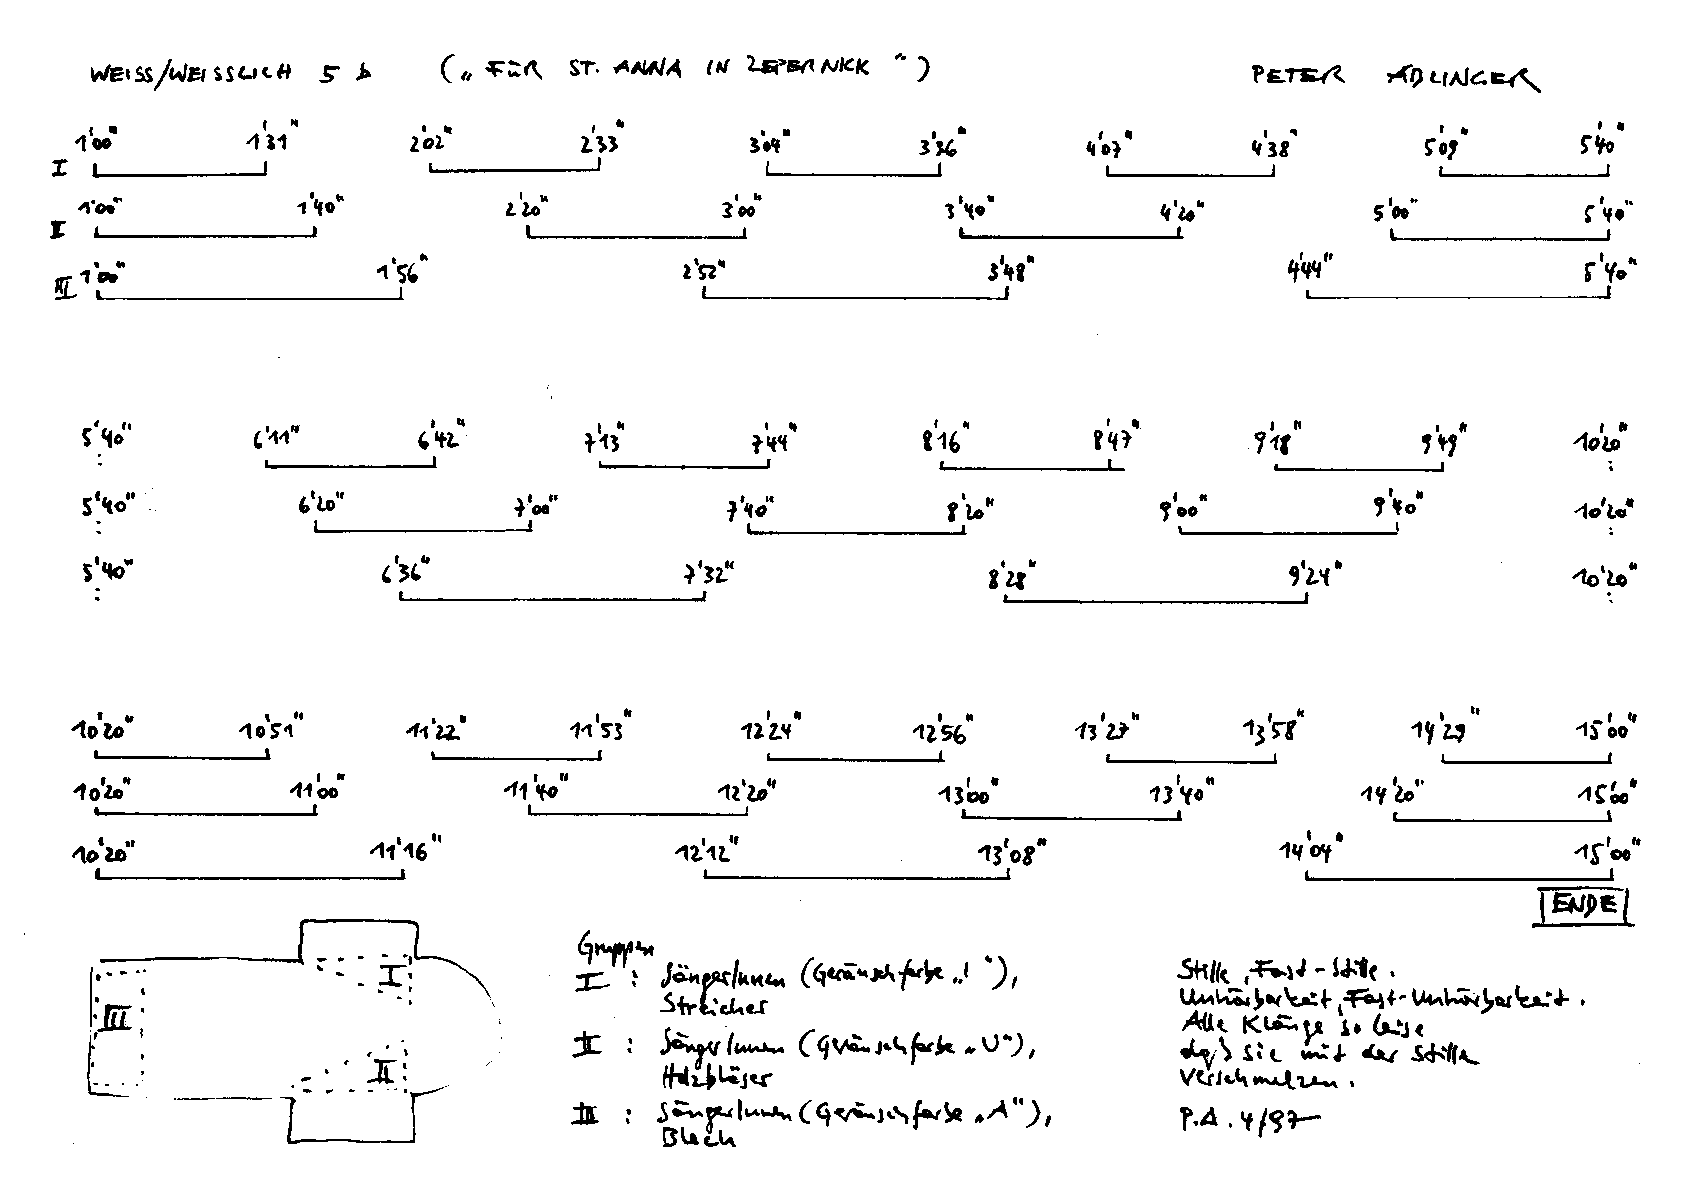 WEISS/WEISSLICH 5 b („FÜR ST. ANNA IN ZEPERNICK") PETER ABLINGER
1'00" 1'31" 2'02" 2'33" 3'04" 3'36" 4'07" 4'38" 5'09" 5'40"
I
1'00" 1'40" 2'20" 3'00" 3'40" 4'20" 5'00" 5'40"
II
1'00" 1'56" 2'52" 3'48" 4'44" 5'40"
III
5'40" 6'11" 6'42" 7'13" 7'44" 8'16" 8'47" 9'18" 9'49" 10'20"
5'40" 6'20" 7'00" 7'40" 8'20" 9'00" 9'40" 10'20"
5'40" 6'36" 7'32" 8'28" 9'24" 10'20"
10'20" 10'51" 11'22" 11'53" 12'24" 12'56" 13'27" 13'58" 14'29" 15'00"
10'20" 11'00" 11'40" 12'20" 13'00" 13'40" 14'20" 15'00"
10'20" 11'16" 12'12" 13'08" 14'04" 15'00"
ENDE
I
III
II
Gruppen
I : SängerInnen (Geräuschfarbe „I"),
Streicher
II : SängerInnen (Geräuschfarbe „U"),
Holzbläser
III : SängerInnen (Geräuschfarbe „A"),
Blech
Stille, Fast-Stille.
Unhörbarkeit, Fast-Unhörbarkeit.
Alle Klänge so leise
daß sie mit der Stille
verschmelzen.
P.A. 4/97